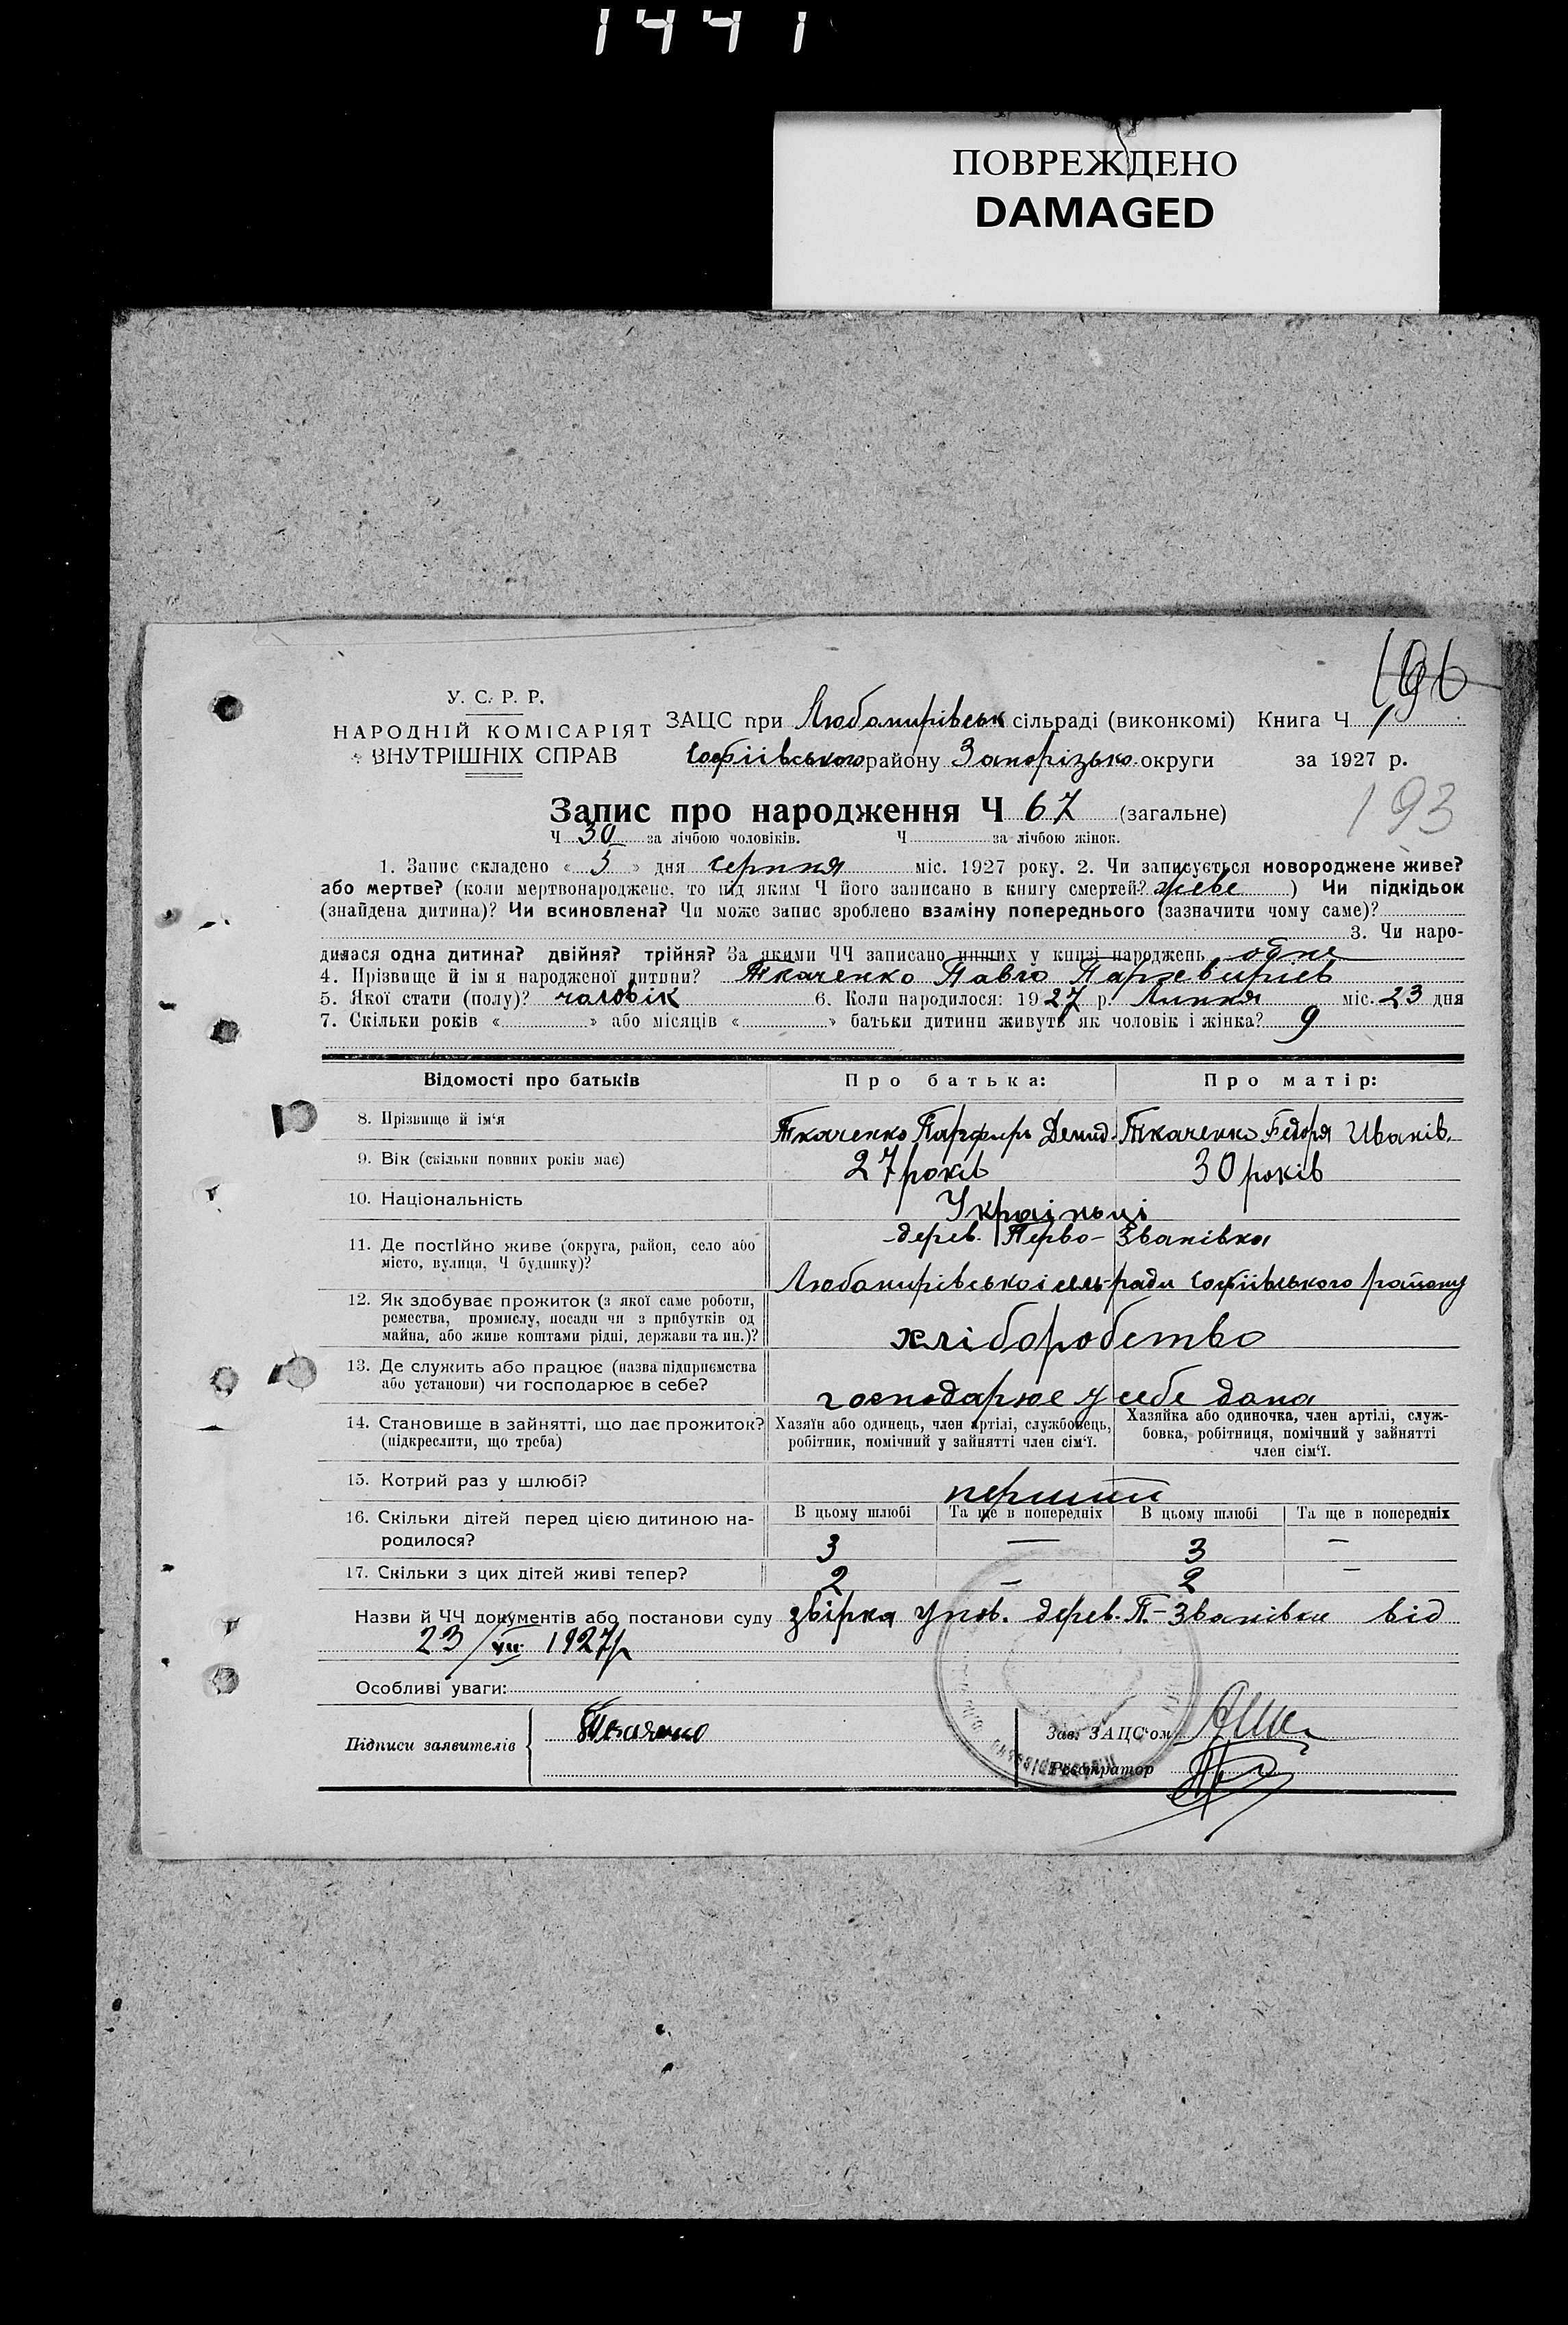 1441
ПОВРЕЖДЕНО
DAMAGED
196
У. С. Р. Р.
НАРОДНІЙ КОМІСАРІЯТ
ВНУТРІШНІХ СПРАВ
ЗАЦС при Любомирівськ сільраді (виконкомі) Книга Ч 1
Софіївського району Запорізько округи за 1927 р.
193
Запис про народження Ч 67 (загальне)
Ч 30 за лічбою чоловіків. Ч за лічбою жінок.
1. Запис складено « 5 » дня серпня міс. 1927 року. 2. Чи записується новороджене живе?
або мертве? (коли мертвонароджене, то під яким Ч його записано в книгу смертей? живе ) Чи підкідьок
(знайдена дитина)? Чи всиновлена? Чи може запис зроблено взаміну попереднього (зазначити чому саме)?
3. Чи наро-
дилася одна дитина? двійня? трійня? За якими ЧЧ записано инших у книзі народжень одне
4. Прізвище й ім я народженої дитини? Ткаченко Павло
5. Якої стати (полу)? чоловік 6. Коли народилося: 1927 р. Липня міс. 23 дня
7. Скільки років « » або місяців « » батьки дитини живуть як чоловік і жінка? 9
Відомості про батьків Про батька: Про матір:
8. Прізвище й ім'я Ткаченко Парфирь Демид. Ткаченко Федоря Иванів.
9. Вік (скільки повних років має) 27 років 30 років
10. Національність Українці
11. Де постійно живе (округа, район, село або
місто, вулиця, Ч будинку)?
дерев. Перво-Званівка
Любомирівськоі сельради Софіівського району
12. Як здобуває прожиток (з якої саме роботи,
ремества, промислу, посади чи з прибутків од
майна, або живе коштами рідні, держави та ин.)?
хліборобство
13. Де служить або працює (назва підприємства
або установи) чи господарює в себе?
господарює у себе дома
14. Становище в зайнятті, що дає прожиток?
(підкреслити, що треба)
Хазяїн або одинець, член артілі, службовець,
робітник, помічний у зайнятті член сім'ї.
Хазяйка або одиночка, член артілі, служ-
бовка, робітниця, помічний у зайнятті
член сім'ї.
15. Котрий раз у шлюбі? перший
16. Скільки дітей перед цією дитиною на-
родилося?
В цьому шлюбі Та ще в попередніх В цьому шлюбі Та ще в попередніх
3 — 3 —
17. Скільки з цих дітей живі тепер? 2 — 2 —
Назви й ЧЧ документів або постанови суду звірка упов. дерев. П.-Званівки від
23/VII 1927р
Особливі уваги:
Підписи заявителів Ткаченко
Зав. ЗАЦС'ом
Реєстратор